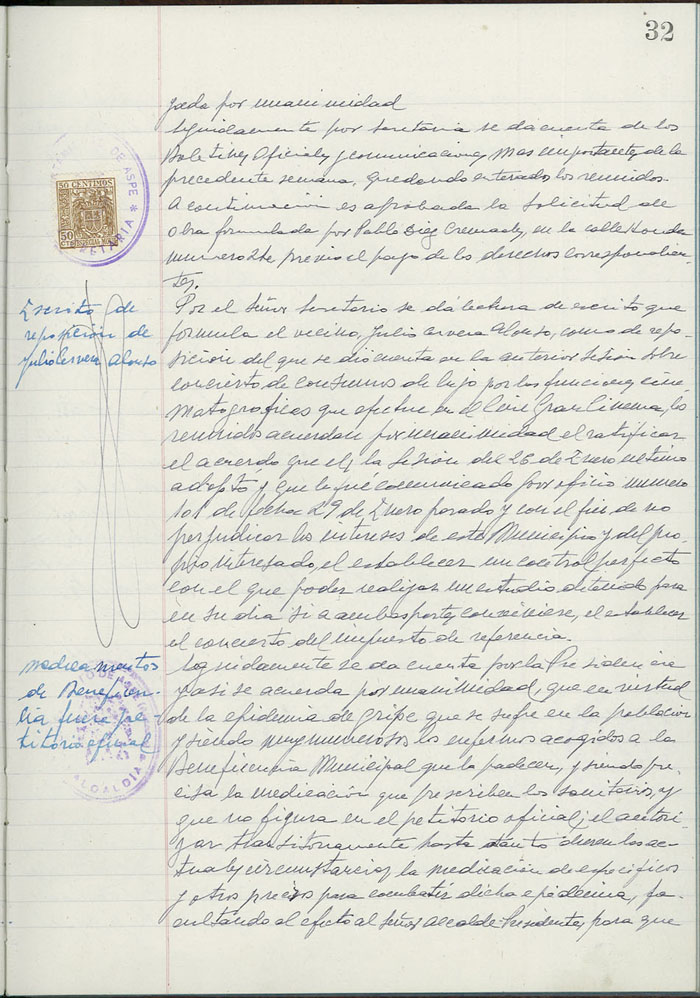 32
DE ASPE * SECRETARIA *
50 CENTIMOS
50
Escrito de
reposición de
Julio Cervera Alonso
medicamentos
de Beneficen-
cia fuera pe-
titorio oficial
DE ASPE
ALCALDIA *
gada por unanimidad
Seguidamente por Secretaria se da cuenta de los
Boletines Oficiales y comunicaciones mas importantes de la
precedente semana, quedando enterados los reunidos.
A continuacion es aprobada la solicitud de
obra formulada por Pablo Diez Cremades, en la calle Honda
numero previo el pago de los derechos correspondien-
tes.
Por el Señor Secretario se dá lectura de escrito que
formula el vecino, Julio Cervera Alonso, como de repo-
sicion del que se dio cuenta en la anterior Sesion sobre
concierto de consumos de lujo por las funciones cine-
matograficas que efectue en el Cine Gran Cinema, los
reunidos acuerdan por unanimidad el ratificar
el acuerdo que en la Sesion del 26 de Enero ultimo
adopto y que le fue comunicado por oficio numero
101 de fecha 29 de Enero pasado y con el fin de no
perjudicar los intereses de este Municipio y del pro-
pio interesado, el establecer un control perfecto
con el que poder realizar un estudio detenido para
en su dia si a ambas partes conviniese, el establecer
el concierto del impuesto de referencia.
Seguidamente se da cuenta por la Presidencia
y asi se acuerda por unanimidad, que en virtud
de la epidemia de gripe que se sufre en la poblacion
y siendo muy numerosos los enfermos acogidos a la
Beneficencia Municipal que la padecen, y siendo pre-
cisa la medicación que prescriben los sanitarios, y
que no figura en el petitorio oficial; el autori-
zar transitoriamente hasta tanto duren las ac-
tuales circunstancias, la medicación de especificos
y otros precisos para combatir dicha epidemia, fa-
cultando al efecto al Señor Alcalde-Presidente, para que